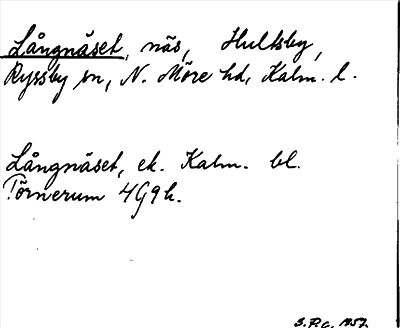 Långnäset, näs, Hultsby,
Ryssby sn, N. Möre hd, Kalm. l.
Långnäset, ek. Kalm. bl.
Törnerum 4G9h.
1957.